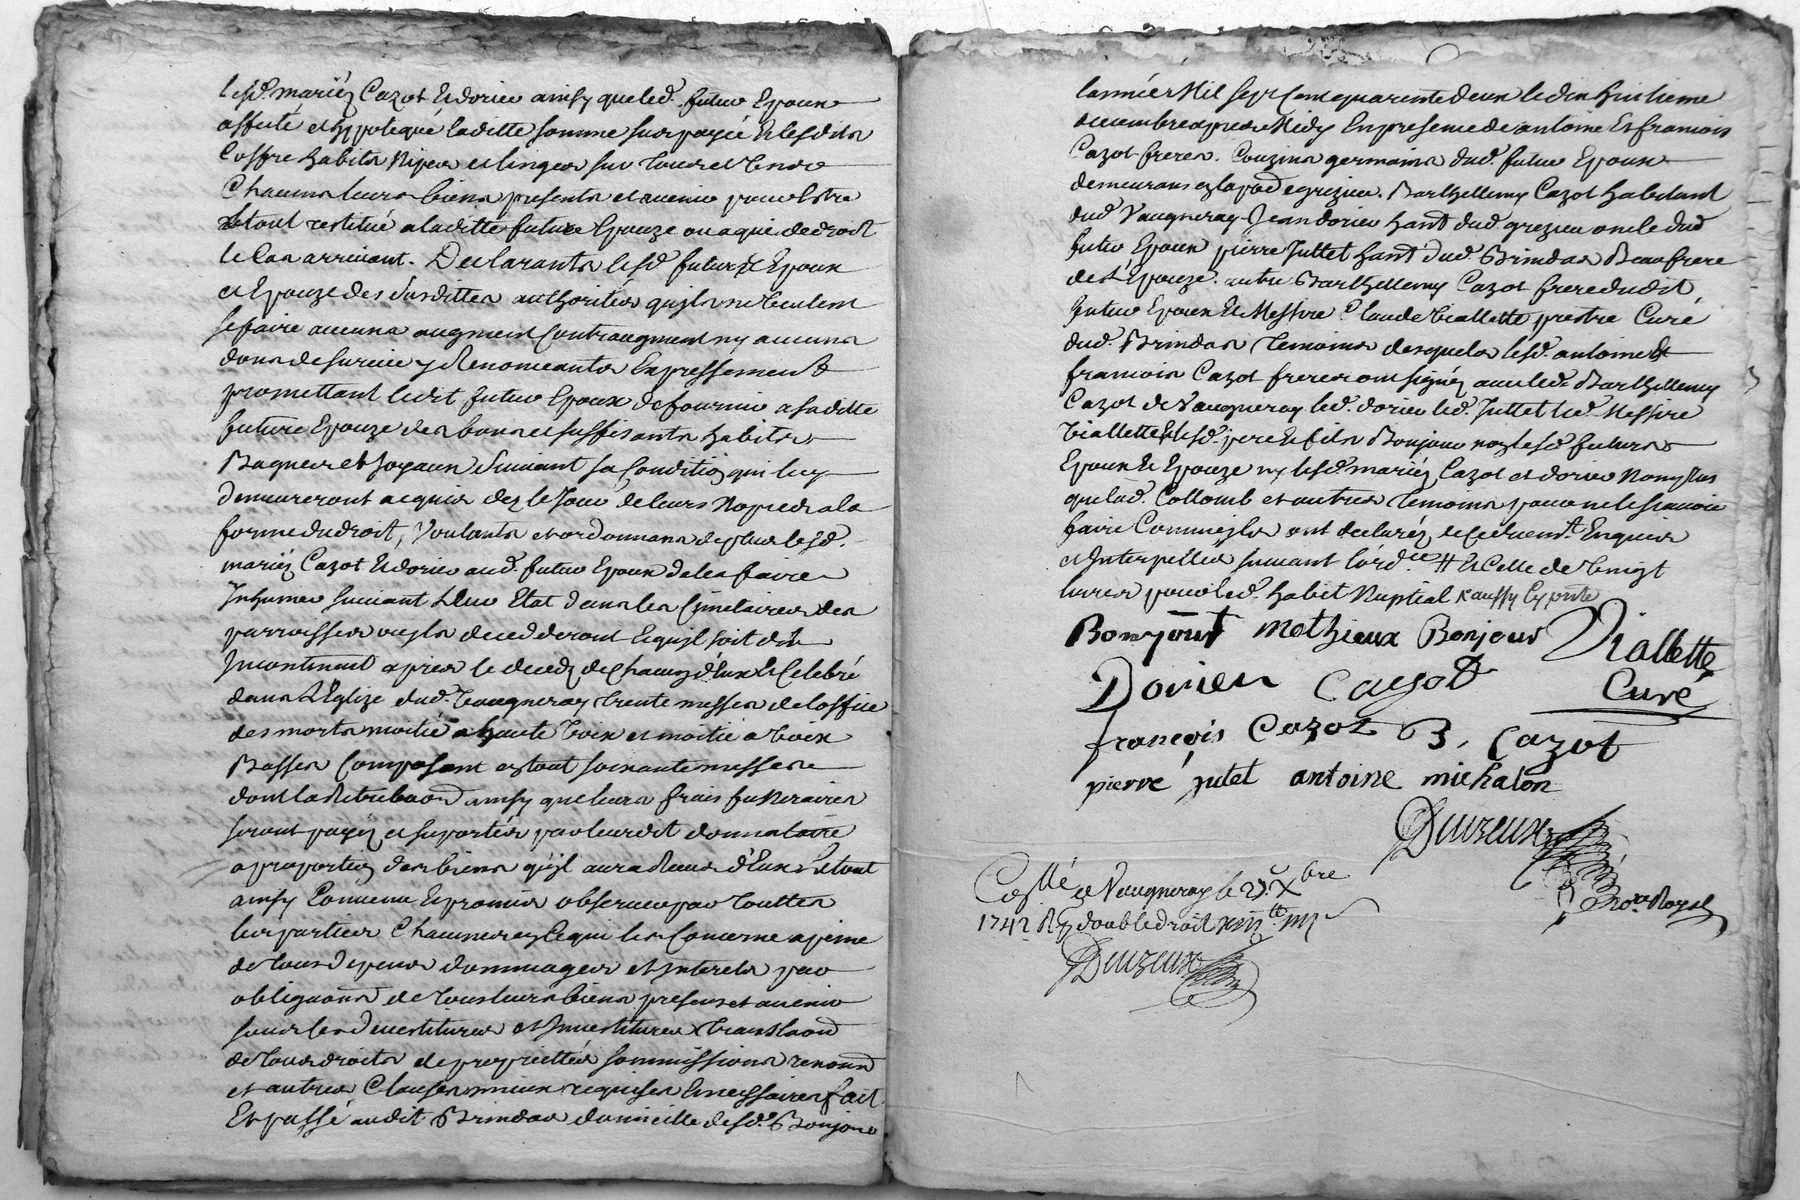 lesd. mariéz Cazot et dorier ainsy que led. futur Epoux
affecté et hypotequé laditte somme sur payée et lesdits
Coffre habits Nipes et linges sur tous et
Chacuns leurs biens presents et avenir pour estre
le tout restitué a laditte future Epouze ou a qui de droit
le Cas arrivant. Declarants lesd. futurs Epoux
et Epouze des susdittes authorités qu'ils ne veulent
se faire aucuns augment Contraugment ny aucuns
dons de survie y Renonceants Expressement
promettant ledit futur Epoux de fournir a saditte
future Epouze des bons et suffisants habits
Bagues et joyaux suivant sa Condition qui luy
demeureront acquis dez le Jour de leurs Nopces a la
forme du droit, Voulants et ordonnans de plus lesd.
mariéz Cazot et dorier aud. futur Epoux de les faire
Inhumer suivant Leur Etat dans les Cimetaires des
parroisses ou ils decedderont et qu'il soit dit
Incontinent apres le decedz de chacun d'Eux et Celebré
dans L'Eglize dud. Vaugneray trente messes de l'office
des morts moitié a haute Voix et moitié a voix
Basses Composant en tout soixante messes
dont la Retribuon ainsy que leurs frais funeraires
seront payéz et suportés par leurdit donnataire
a proportion des biens qu'il aura Reçus d'Eux Le tout
ainsy Convenu et promis observer par touttes
les parties Chacune en ce qui les Concerne a peine
de tous depens dommages et interets par
obligaons de tous leurs biens presens et avenir
sous les devestitures et Investitures translaon
de tous droits de proprietés sommissions renonon
et autres Clauses mieux requises et necessaires fait
Et passé audit Brindas domicille desd. Bonjour
l'année Mil sept Cent quarente deux le dix huitieme
decembre apres Midy En presence de antoine Et francois
Cazot freres. Couzins germains dud. futur Epoux
demeurans en la par. de grezieu. Barthellemy Cazot habitant
dud. Vaugneray Jean dorier hant dud. grezieu oncle dud.
futur Epoux pierre Juttet hant dud. Brindas Beaufrere
de l'Epouze. autre Barthellemy Cazot frere dudit
futur Epoux Et Messire Claude Viallette prestre Curé
dud. Brindas temoins desquels lesd. antoine Et
francois Cazot freres ont signéz avec led. Barthellemy
Cazot de Vaugneray led. dorier led. Juttet led. Messire
Viallette Et lesd. pere et fils Bonjour non lesd. futurs
Epoux et Epouze ny lesd. mariéz Cazot et dorier Non plus
que lad. Collomb et autres temoins pour ne le scavoir
faire Comme ils ont declaréz de ce duemt. Enquis
et Interpellés suivant l'ord.ce # Et Celle de vingt
livres pour led. habit Nuptial
Bonjour Mathieux Bonjour Viallette
Dorier Cazot Curé
francois Cazot B. Cazot
pierre jutet antoine michalon
Deuzeux
Not. Royal
Collé a Vaugneray le 27. Xbre
1742 R double droit
Deuzeux